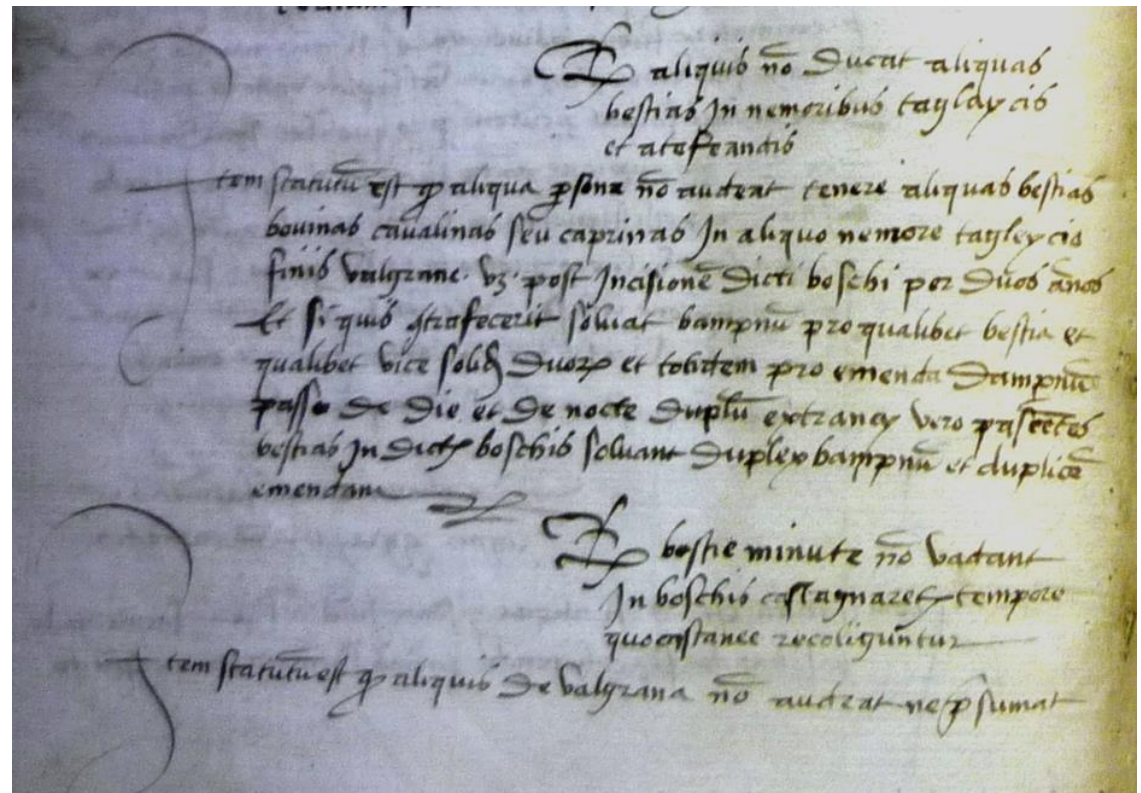 Q aliquis nō ducat aliquas
bestias In nemoribus taglaycis
et
Item statutū est q̄ aliqua ꝑsona nō audeat tenere aliquas bestias
bovinas cavalinas seu caprinas In aliquo nemore tagleycio
finis valgrane vꝫ post Incisionē dicti boschi per duos ānos
Et si quis ꝯtrafecerit solvat bampnū pro qualibet bestia et
qualibet vice solid duoꝝ et totidem pro emenda dampnū
passo de die et de nocte duplū extraney vero pascētes
bestias In dictꝭ boschis solvant duplex bampnū et duplicē
emendam
Q bestie minute nō vadant
In boschis castagnaretꝭ tempore
quo castanee recoliguntur
Item statutū est q̄ aliquis de valgrana nō audeat nec p̄sumat